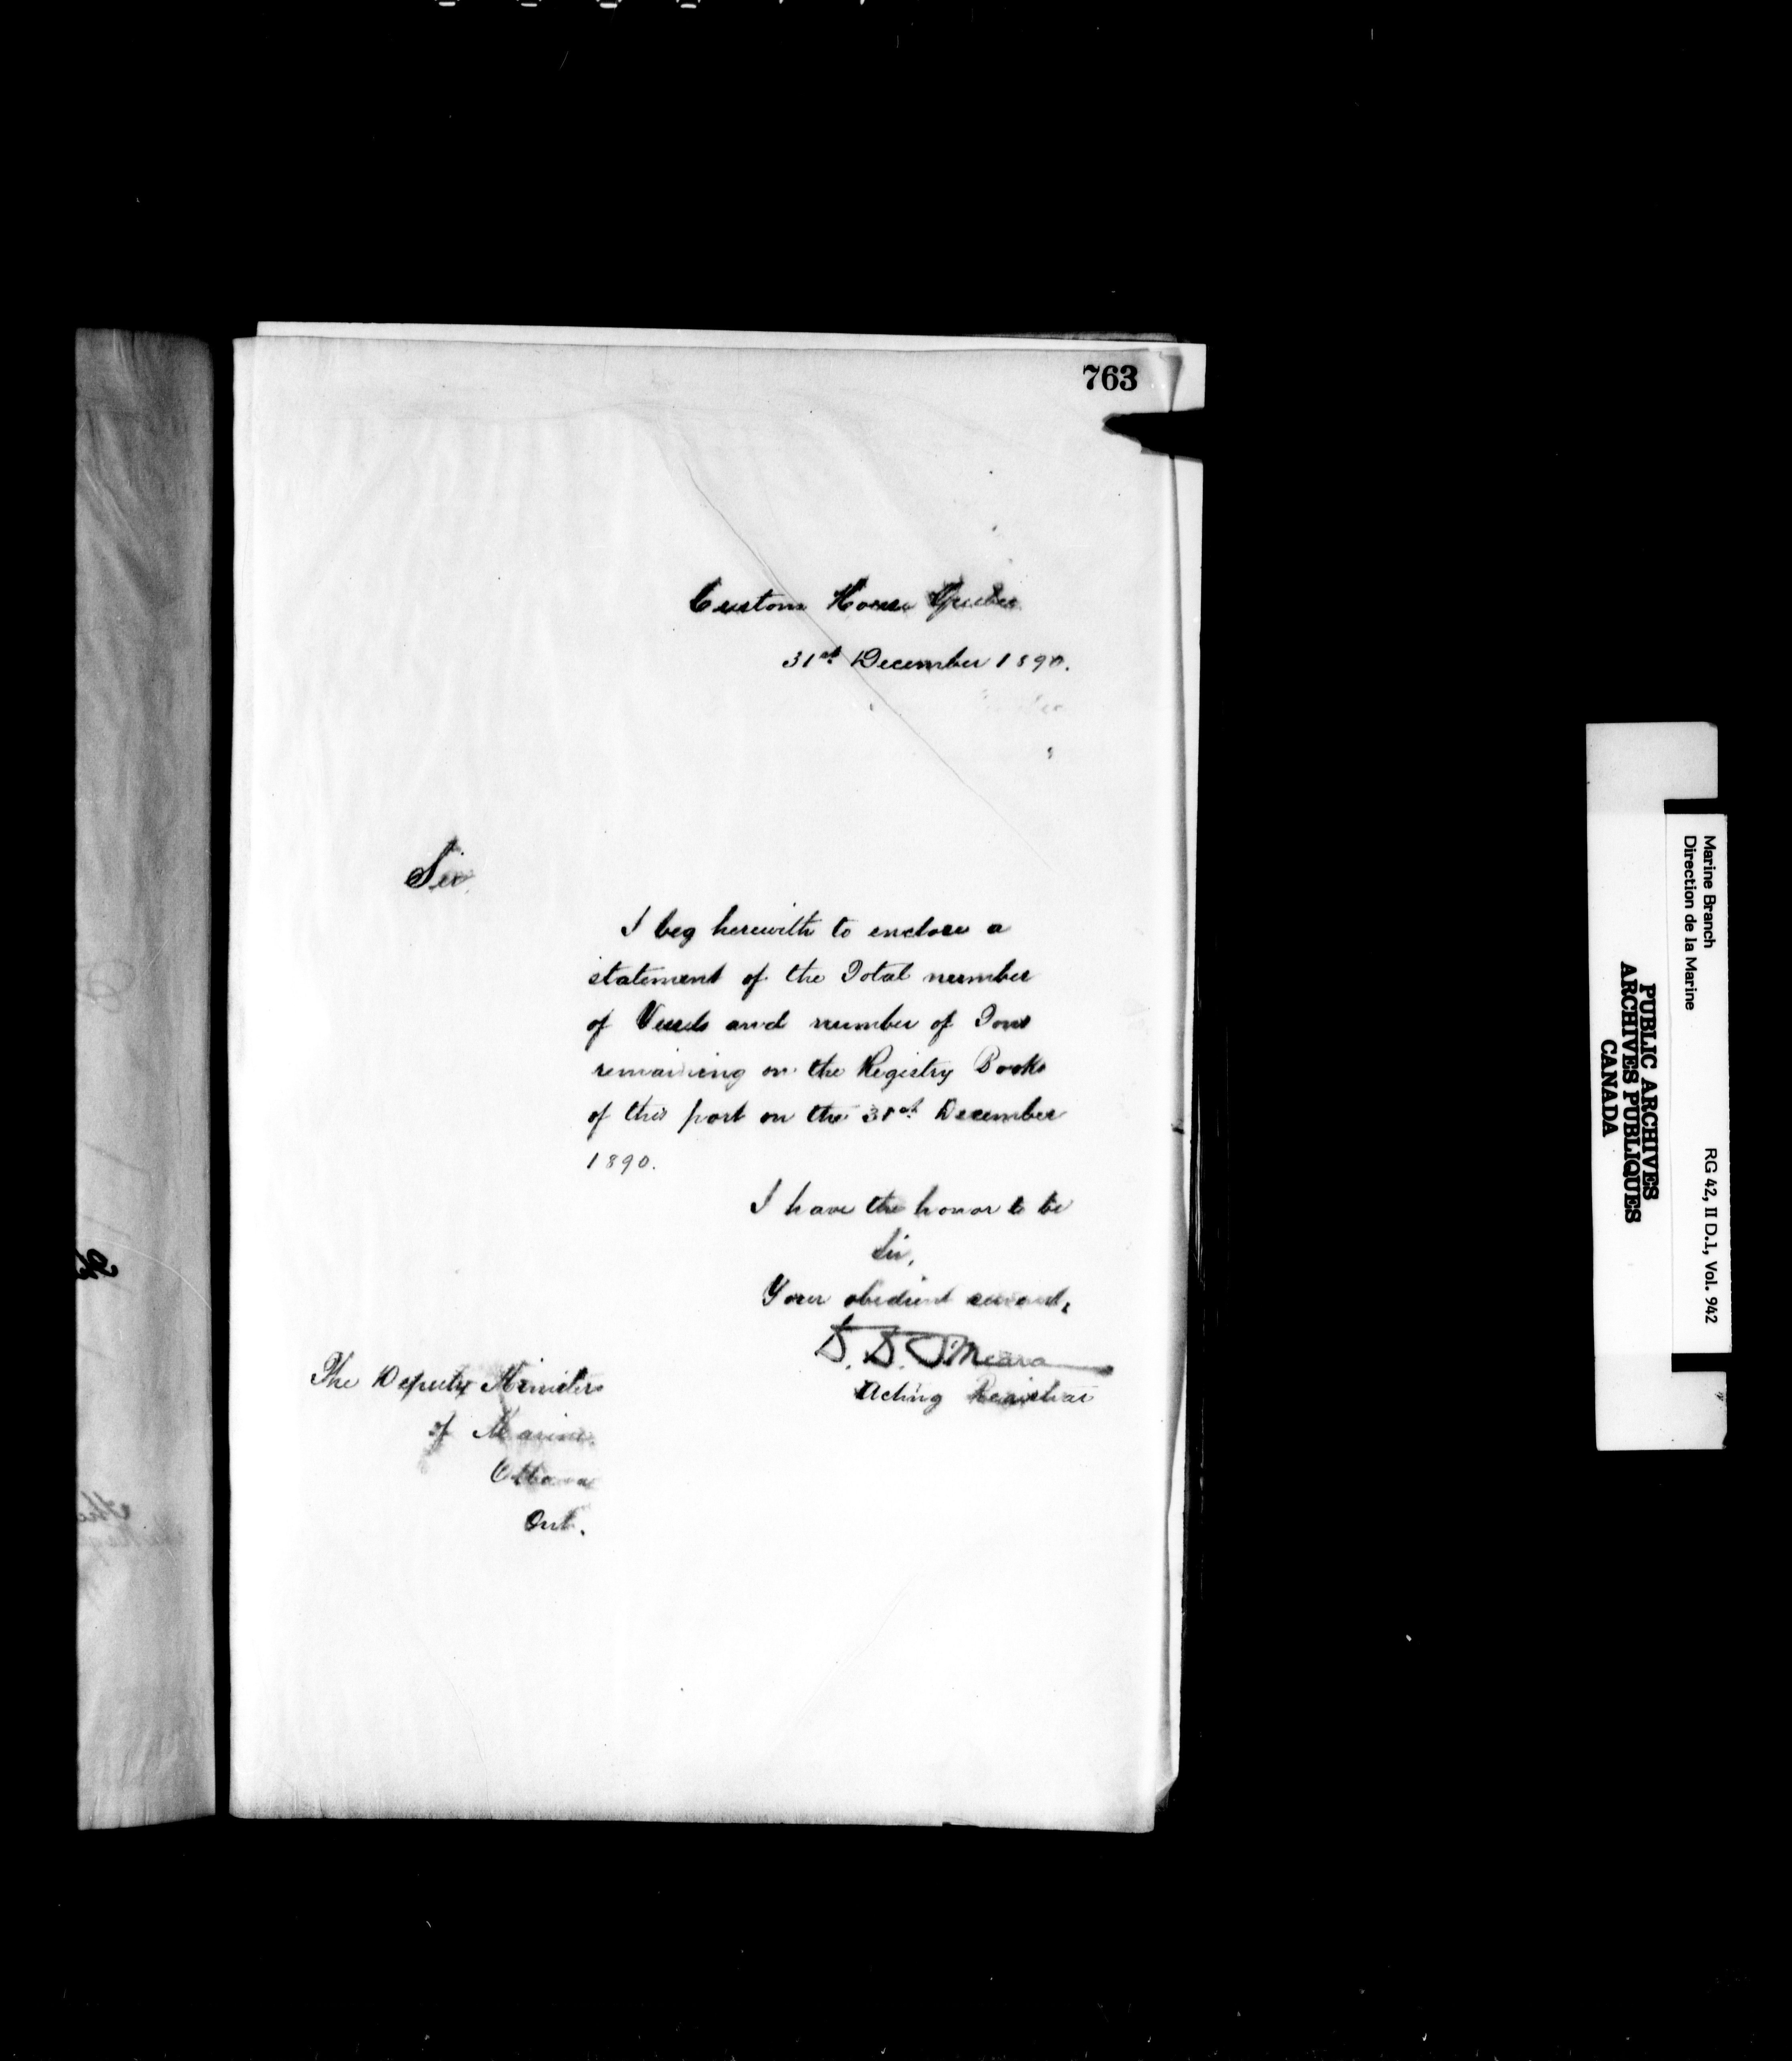 763
Custom House Quebec
31st December 1890.
Sir,
I beg herewith to enclose a
statement of the Total number
of Vessels and number of Tons
remaining on the Registry Books
of this port on the 31st December
1890.
I have the honor to be
Sir,
Your obedient servant,
D. D. O'Meara
Acting Registrar
The Deputy Minister
of Marine.
Ottawa
Ont.
Marine Branch
Direction de la Marine
RG 42, II D.1, Vol. 942
PUBLIC ARCHIVES
ARCHIVES PUBLIQUES
CANADA